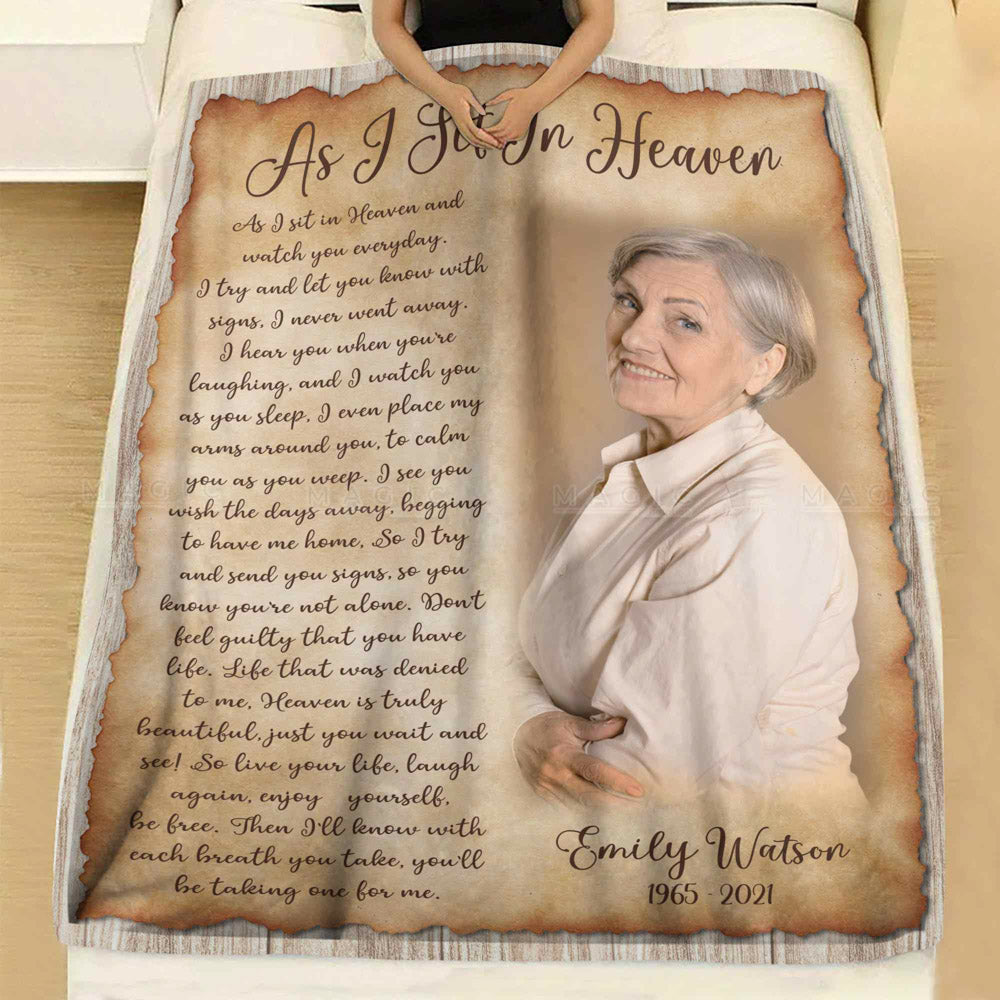 As I Sit In Heaven
As I sit in Heaven and
watch you everyday.
I try and let you know with
signs, I never went away.
I hear you when you're
laughing, and I watch you
as you sleep, I even place my
arms around you, to calm
you as you weep. I see you
wish the days away, begging
to have me home, So I try
and send you signs, so you
know you're not alone. Don't
feel guilty that you have
life. Life that was denied
to me, Heaven is truly
beautiful, just you wait and
see! So live your life, laugh
again, enjoy yourself,
be free. Then I'll know with
each breath you take, you'll
be taking one for me.
Emily Watson
1965 - 2021